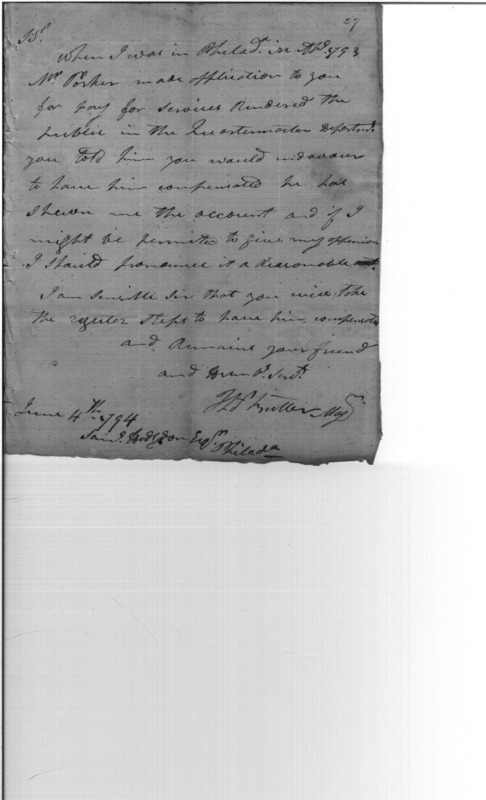 27
Sir
When I was in Philad. in Apl. 1793
Mr. Parker made application to you
for pay for services Rendered the
publick in the Quartermaster Departmt.
you told him you would endavour
to have him compensated he has
shewn me the account and if I
might be permited to give my oppenion
I should pronounce it a Reasonable
I am Sensible Sir that you will take
the reguler steps to have him compensated
and Remains your friend
and Humbl. Servt.
Thos. Butler Majr.
June 4th. 1794
Saml. Hodgdon Esqr.
Philada